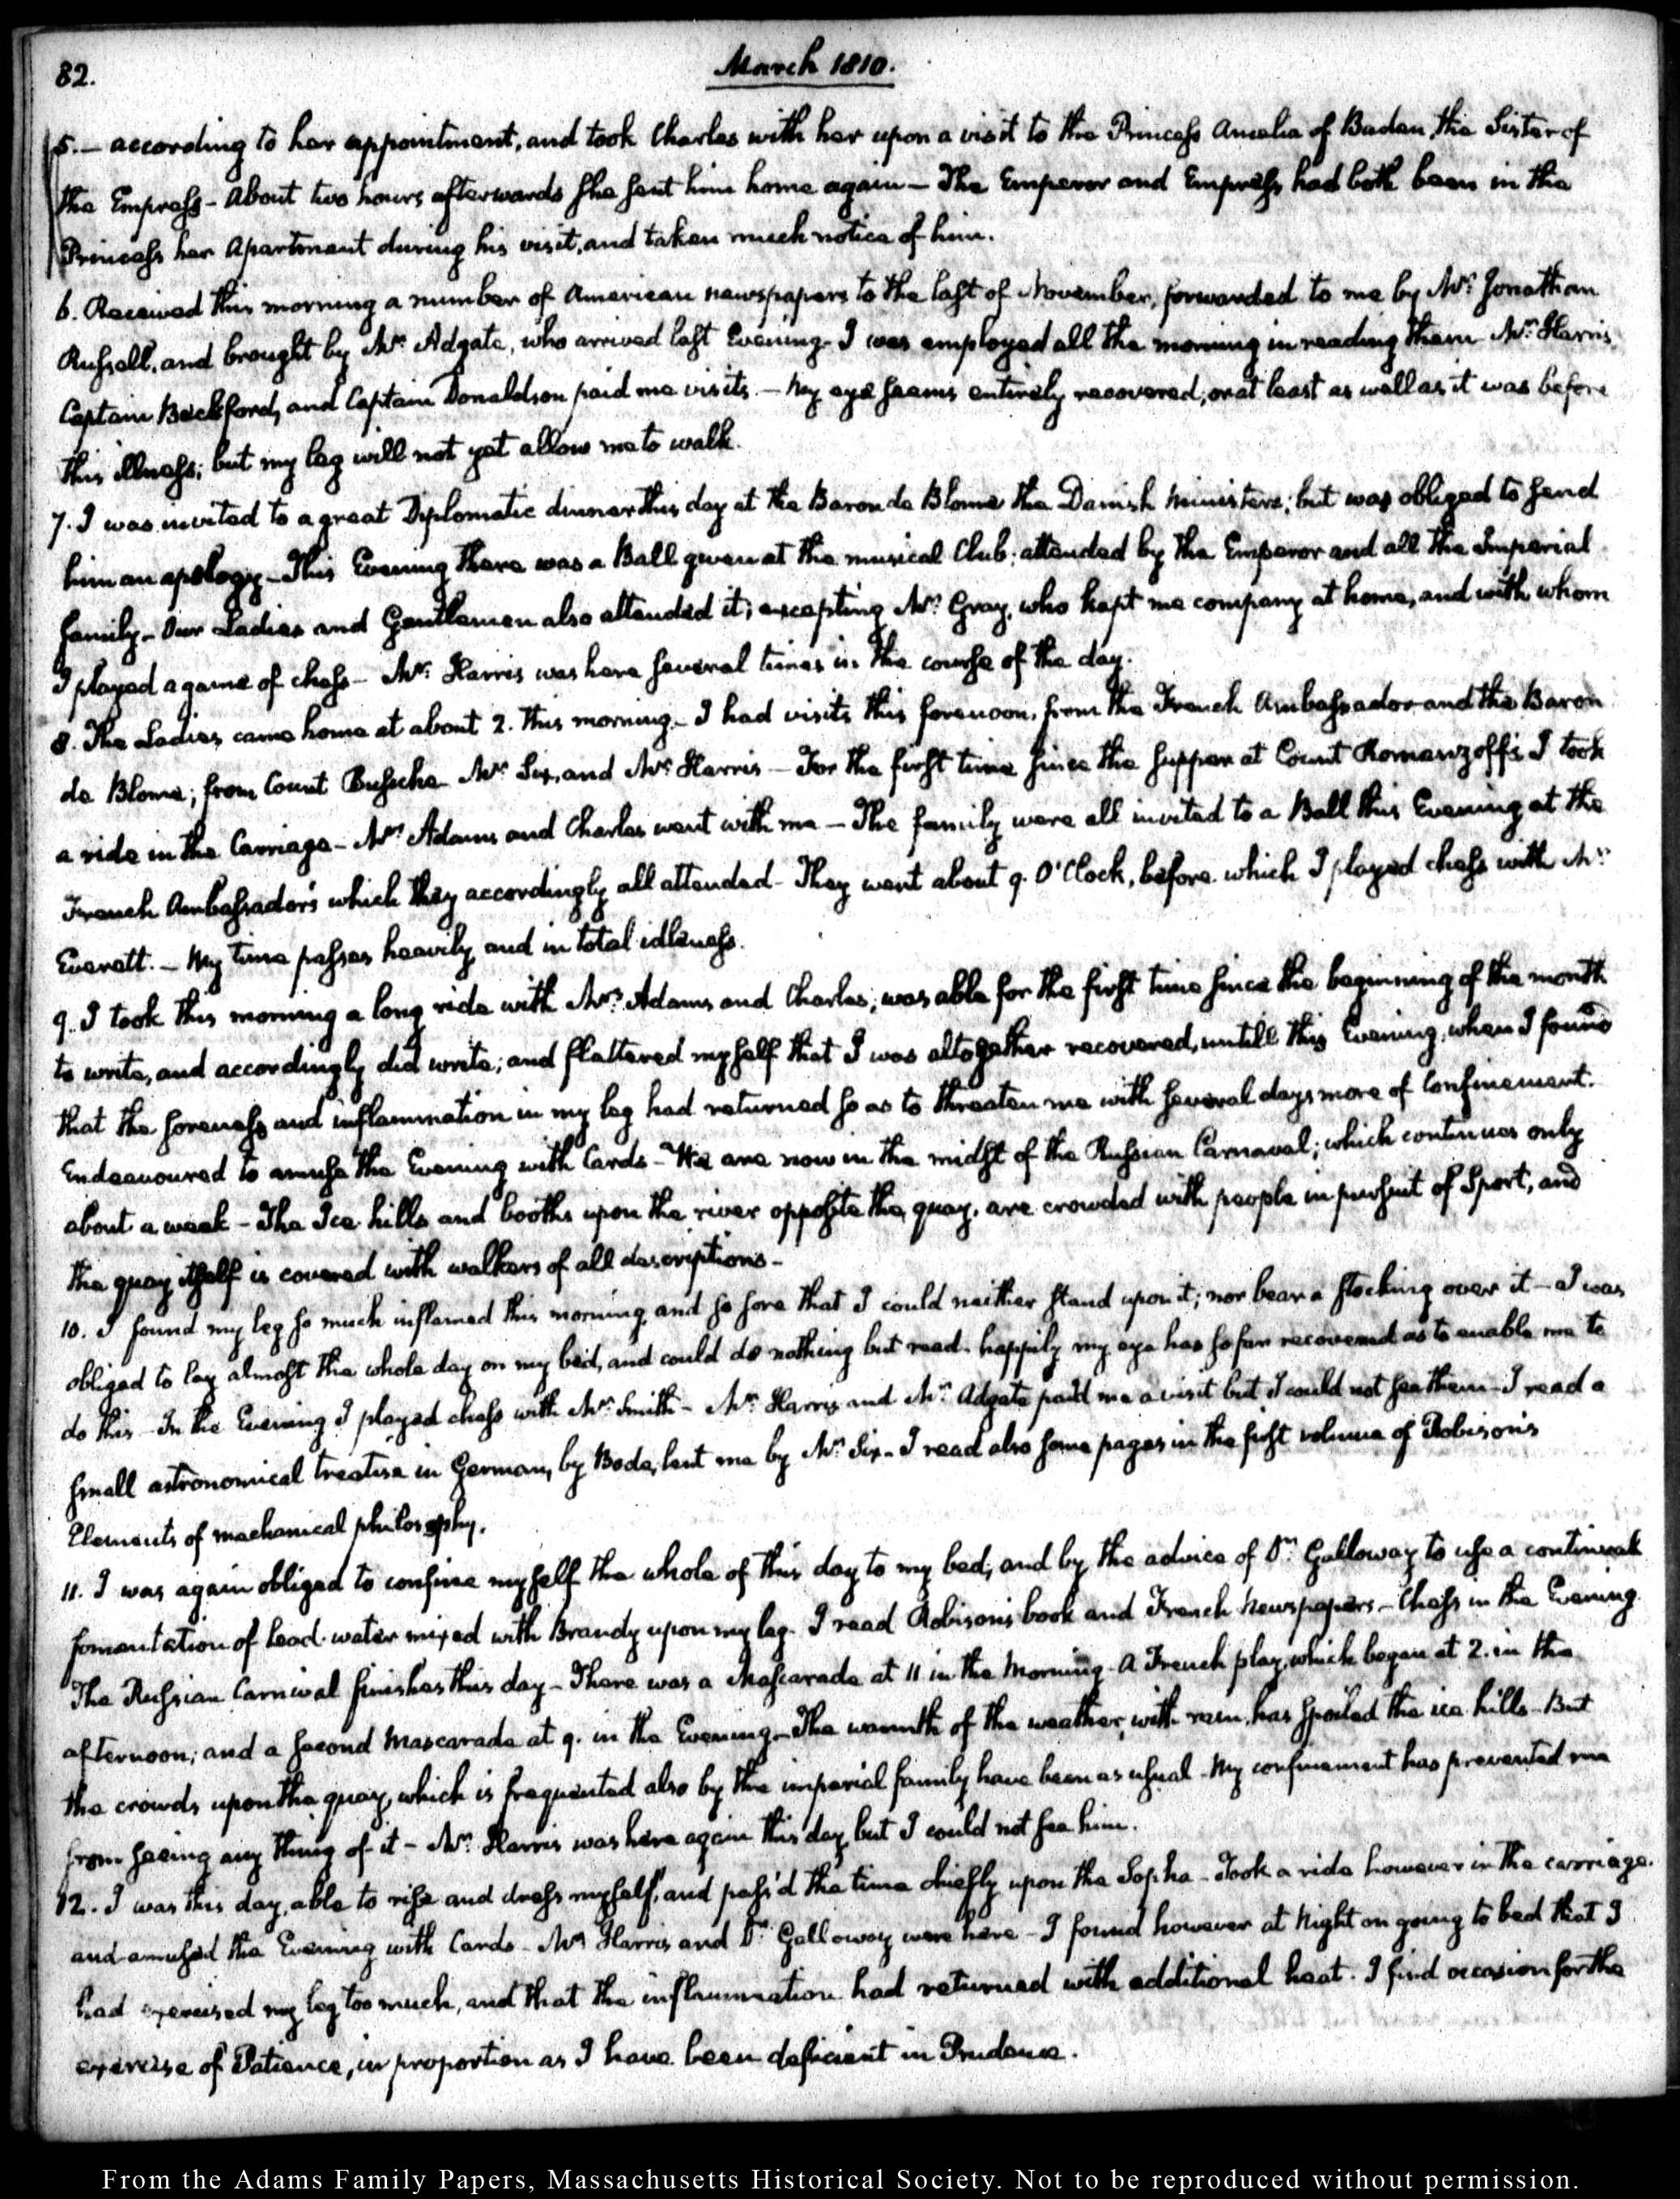 82.
March 1810.
5.— according to her appointment, and took Charles with her upon a visit to the Princess Amelia of Baden, the Sister of
the Empress— About two hours afterwards she sent him home again— The Emperor and Empress, had both been in the
Princess her Apartment during his visit, and taken much notice of him.
6. Received this morning a number of American newspapers to the last of November, forwarded to me by Mr. Jonathan
Russell, and brought by Mr. Adgate, who arrived last Evening— I was employed all the morning in reading them— Mr. Harris,
Captain Beckford, and Captain Donaldson paid me visits.— My eye seems entirely recovered; or at least as well as it was before
this illness; but my leg will not yet allow me to walk.
7. I was invited to a great Diplomatic dinner this day at the Baron de Blome the Danish Ministers; but was obliged to send
him an apology— This Evening there was a Ball given at the musical Club; attended by the Emperor and all the Imperial
family— Our Ladies and Gentlemen also attended it; excepting Mr. Gray, who kept me company at home, and with whom
I played a game of chess— Mr. Harris was here several times in the course of the day.
8. The Ladies came home at about 2. this morning— I had visits this forenoon, from the French Ambassador and the Baron
de Blome; from Count Bussche Mr. Six, and Mr. Harris— For the first time since the supper at Count Romanzoff's I took
a ride in the Carriage— Mrs. Adams and Charles went with me— The family were all invited to a Ball this Evening at the
French Ambassador's which they accordingly all attended— They went about 9. O'Clock, before which I played chess with Mr.
Everett.— My time passes heavily and in total idleness.
9. I took this morning a long ride with Mrs. Adams and Charles; was able for the first time since the beginning of the month
to write, and accordingly did write; and flattered myself that I was altogether recovered, untill this Evening, when I found
that the soreness and inflammation in my leg had returned so as to threaten me with several days more of Confinement.
Endeavoured to amuse the Evening with Cards— We are now in the midst of the Russian Carnaval; which continues only
about a week— The Ice hills and booths upon the river opposite the quay, are crowded with people in pursuit of Sport, and
the quay itself is covered with walkers of all descriptions—
10. I found my leg so much inflamed this morning, and so sore that I could neither stand upon it; nor bear a stocking over it— I was
obliged to lay almost the whole day on my bed, and could do nothing but read. happily my eye has so far recovered as to enable me to
do this— In the Evening I played chess with Mr. Smith— Mr. Harris and Mr. Adgate paid me a visit but I could not see them— I read a
small astronomical treatise in German, by Bode, lent me by Mr. Six— I read also some pages in the first volume of Robison's
Elements of mechanical philosophy.
11. I was again obliged to confine myself the whole of this day to my bed; and by the advice of Dr. Galloway to use a continual
fomentation of lead-water mixed with Brandy upon my leg. I read Robison's book and French Newspapers— Chess in the Evening.
The Russian Carnival finishes this day— There was a Mascarade at 11 in the Morning. A French play, which began at 2. in the
afternoon; and a second Mascarade at 9. in the Evening— The warmth of the weather, with rain, has spoiled the ice hills— But
the crowds upon the quay, which is frequented also by the imperial family have been as usual— My confinement has prevented me
from seeing any thing of it— Mr. Harris was here again this day, but I could not see him.
12. I was this day, able to rise and dress myself, and pass'd the time chiefly upon the Sopha— Took a ride however in the carriage.
and amused the Evening with Cards— Mr. Harris and Dr. Galloway were here— I found however at Night on going to bed that I
had exercised my leg too much, and that the inflammation had returned with additional heat. I find occasion for the
exercise of Patience, in proportion as I have been deficient in Prudence.
From the Adams Family Papers, Massachusetts Historical Society. Not to be reproduced without permission.